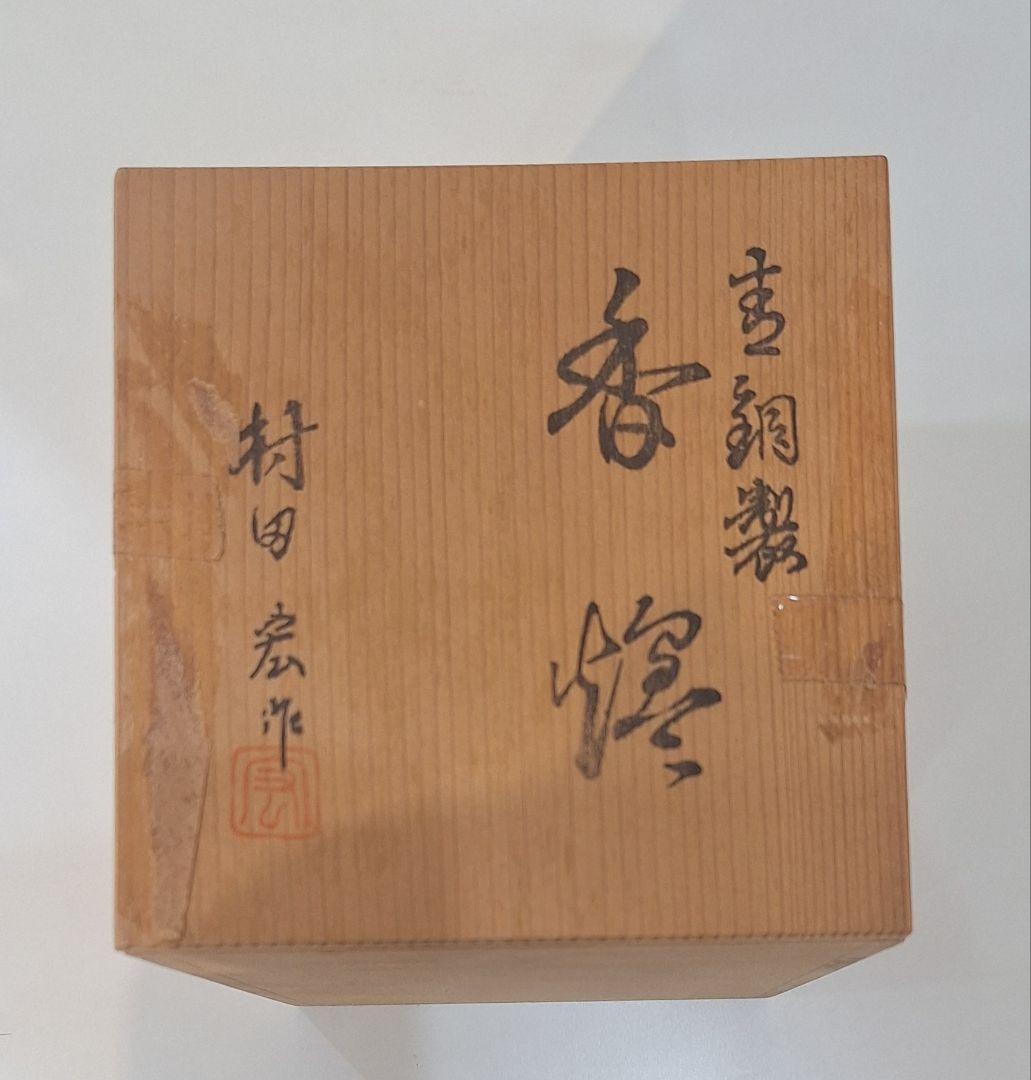 青銅製
香爐
村田宏作
宏